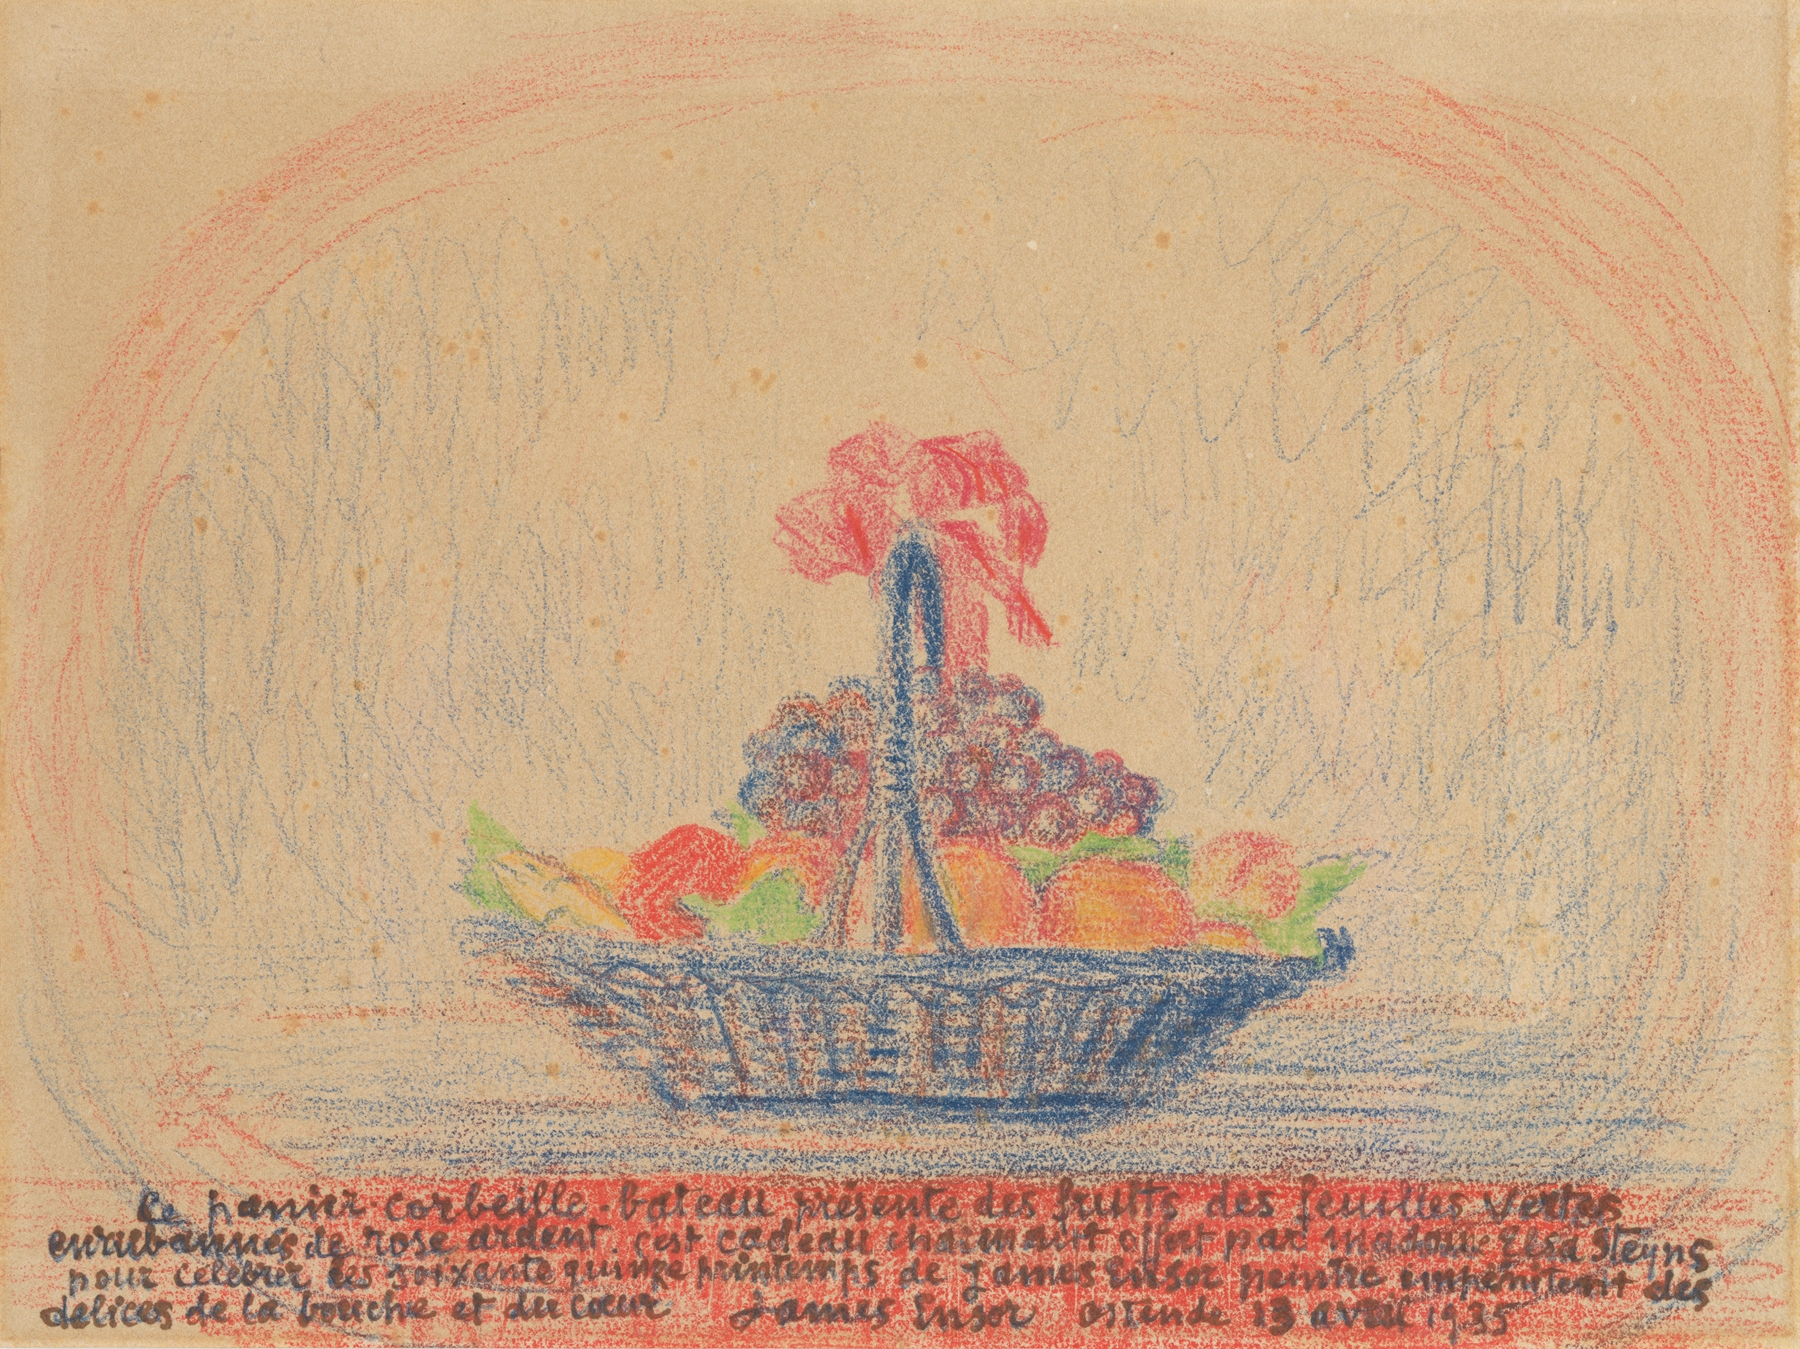 Ce panier-corbeille-bateau présente des fruits des feuilles vertes
enrubannés de rose ardent. c'est cadeau charmant offert par madame Elsa Steyns
pour célébrer les soixante quinze printemps de James Ensor peintre impénitent des
délices de la bouche et du cœur James Ensor Ostende 13 avril 1935